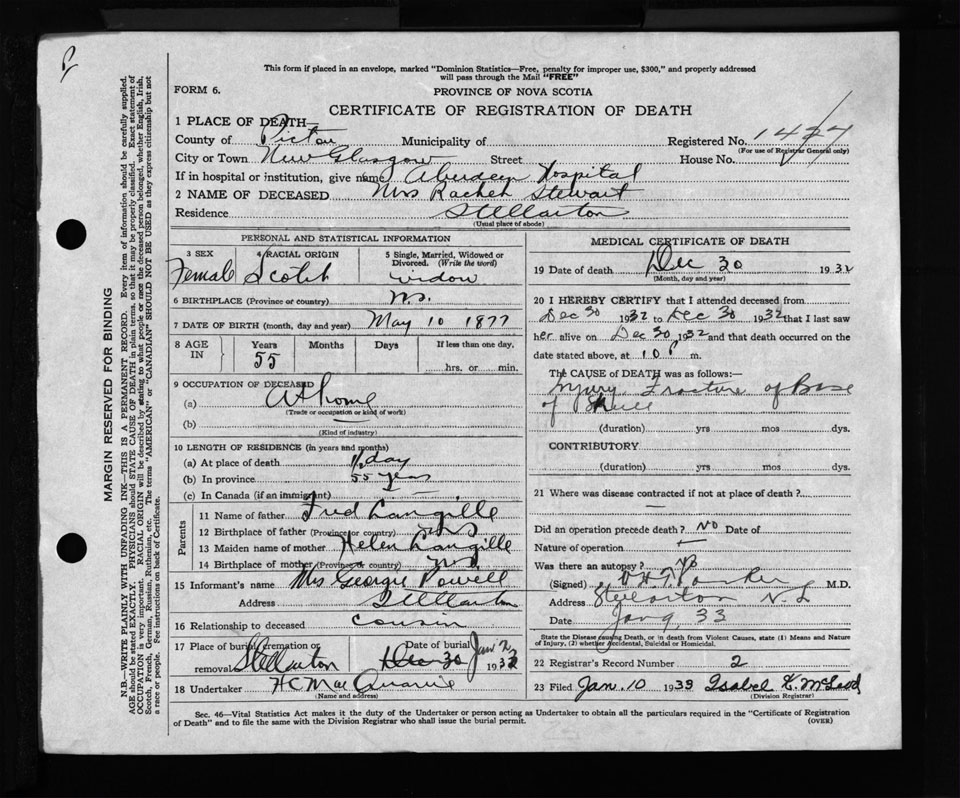 This form if placed in an envelope, marked "Dominion Statistics—Free, penalty for improper use, $300," and properly addressed
will pass through the Mail "FREE"
FORM 6.
PROVINCE OF NOVA SCOTIA
CERTIFICATE OF REGISTRATION OF DEATH
1 PLACE OF DEATH—
County of Pictou Municipality of Registered No. 1427
(For use of Registrar General only)
City or Town New Glasgow Street House No.
If in hospital or institution, give name Aberdeen Hospital
2 NAME OF DECEASED Mrs Rachel Stewart
Residence Stellarton
(Usual place of abode)
PERSONAL AND STATISTICAL INFORMATION
3 SEX 4 RACIAL ORIGIN 5 Single, Married, Widowed or
Divorced. (Write the word)
Female Scotch widow
6 BIRTHPLACE (Province or country) N.S.
7 DATE OF BIRTH (month, day and year) May 10 1877
8 AGE IN Years Months Days If less than one day,
55 hrs. or min.
9 OCCUPATION OF DECEASED
(a) At home
(Trade or occupation or kind of work)
(b)
(Kind of industry)
10 LENGTH OF RESIDENCE (in years and months)
(a) At place of death 1/2 day
(b) In province 55 years
(c) In Canada (if an immigrant) —
Parents
11 Name of father Fred Langille
12 Birthplace of father (Province or country) N.S.
13 Maiden name of mother Helen Langille
14 Birthplace of mother (Province or country) N.S.
15 Informant's name Mrs Georgie Powell
Address Stellarton
16 Relationship to deceased cousin
17 Place of burial, cremation or Date of burial Jan 2
removal Stellarton Dec 30 1933
18 Undertaker H C MacQuarrie
(Name and address)
MEDICAL CERTIFICATE OF DEATH
19 Date of death Dec 30 1932
(Month, day and year)
20 I HEREBY CERTIFY that I attended deceased from
Dec 30 1932 to Dec 30 1932 that I last saw
her alive on Dec 30 1932 and that death occurred on the
date stated above, at 10 P m.
The CAUSE of DEATH was as follows:—
Injury Fracture of Base
of Skull
(duration) yrs mos dys.
CONTRIBUTORY
(duration) yrs mos dys.
21 Where was disease contracted if not at place of death?
—
Did an operation precede death? No Date of
Nature of operation —
Was there an autopsy? No
(Signed) Parker M.D.
Address Stellarton N.S.
Date Jan 9, 33
State the Disease causing Death, or in death from Violent Causes, state (1) Means and Nature
of Injury, (2) whether Accidental, Suicidal or Homicidal.
22 Registrar's Record Number 2
23 Filed Jan. 10 1933 Isabel K. McLeod
(Division Registrar)
Sec. 46—Vital Statistics Act makes it the duty of the Undertaker or person acting as Undertaker to obtain all the particulars required in the "Certificate of Registration
of Death" and to file the same with the Division Registrar who shall issue the burial permit.
(OVER)
MARGIN RESERVED FOR BINDING
N.B.—WRITE PLAINLY WITH UNFADING INK—THIS IS A PERMANENT RECORD. Every item of information should be carefully supplied.
AGE should be stated EXACTLY. PHYSICIANS should STATE CAUSE OF DEATH in plain terms, so that it may be properly classified. Exact statement of
OCCUPATION is very important. RACIAL ORIGIN will be described by stating to what people or race the deceased person belonged, whether English, Irish,
Scotch, French, German, Russian, Ruthenian, etc. The terms "AMERICAN" or "CANADIAN" SHOULD NOT BE USED as they express citizenship but not
a race or people. See instructions on back of Certificate.